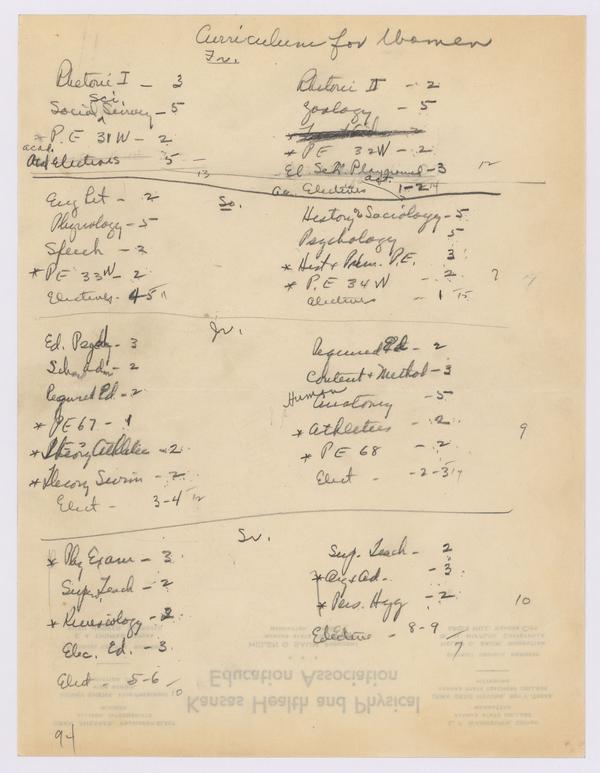 Curriculum for Women
Fr.
Rhetoric I - 3
Sci.
Social Survey - 5
* P.E 31 W - 2
acad.
Electives 5 -
13
Rhetoric II - 2
Zoology - 5
* PE 32W - 2
El Sch. Playground - 3
12
Electives 1-2
14
So.
Eng Lit - 2
Physiology - 5
Speech - 2
* PE 33W - 2
Electives - 45
11
History & Sociology - 5
Psychology 5
* Hist & Prin. P.E. 3
* P.E 34 W - 2
7
electives - 1
15
Jr.
Ed. Psych - 3
School Adm - 2
Required Ed. - 2
* PE 67 - 1
* Theory Athletics - 2
* Theory Swim - 2
Elect - 3-4
12
Required Ed - 2
Content & Method - 3
Human
Anatomy - 5
* Athletics - 2
9
* PE 68 - 2
Elect - 2-3
Sr.
* Phy Exam - 3
Sup. Teach - 2
* Kinesiology - 2
Elec. Ed. - 3
Elect - 5-6
10
Sup. Teach - 2
* Org & Ad. - 3
* Pers. Hyg - 2
10
Elective - 8-9
7
Kansas Health and Physical
Education Association
94